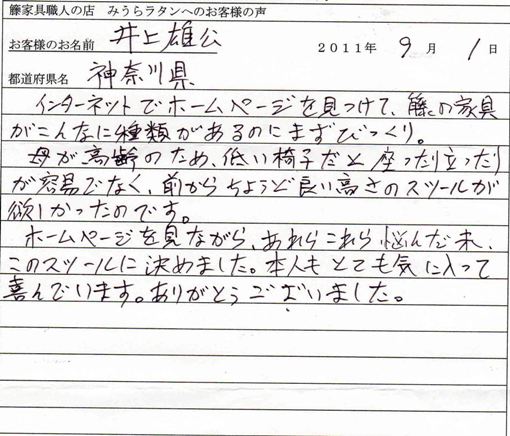 籐家具職人の店　みうらラタンへのお客様の声
お客様のお名前　井上雄公　2011年　9月　1日
都道府県名　神奈川県
インターネットでホームページを見つけて、籐の家具
がこんなに種類があるのにまずびっくり。
母が高齢のため、低い椅子だと座ったり立ったり
が容易でなく、前からちょうど良い高さのスツールが
欲しかったのです。
ホームページを見ながら、あれらこれら悩んだ末、
このスツールに決めました。本人もとても気に入って
喜んでいます。ありがとうございました。